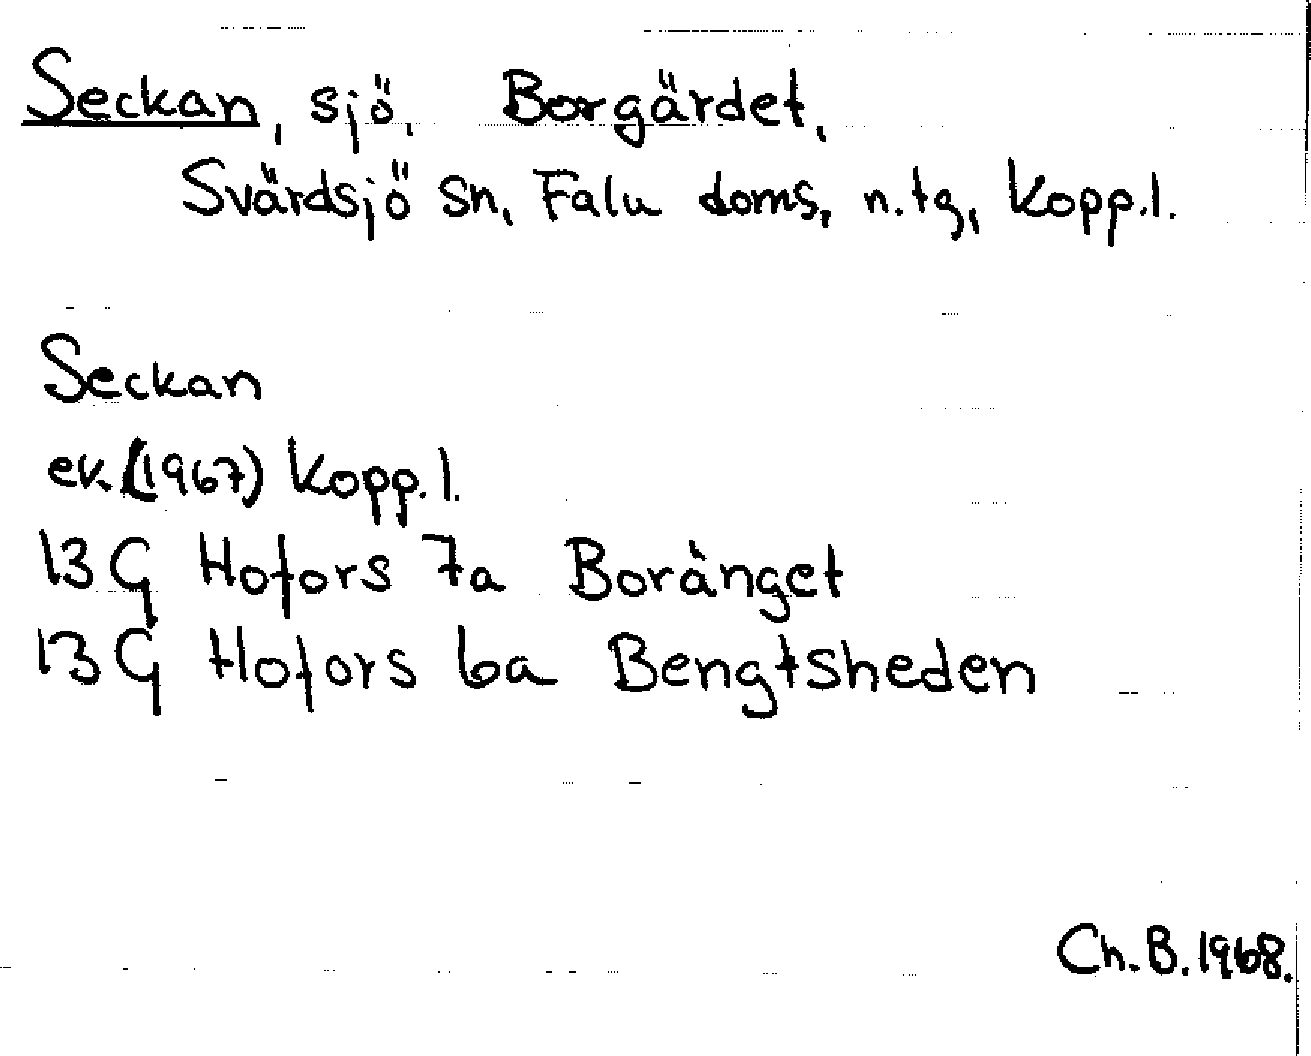 Seckan, sjö, Borgärdet,
Svärdsjö sn, Falu doms, n.tg, Kopp.l.
Seckan
ek.(1967) Kopp.l.
13G Hofors 7a Boränget
13G Hofors 6a Bengtsheden
Ch.B.1968.